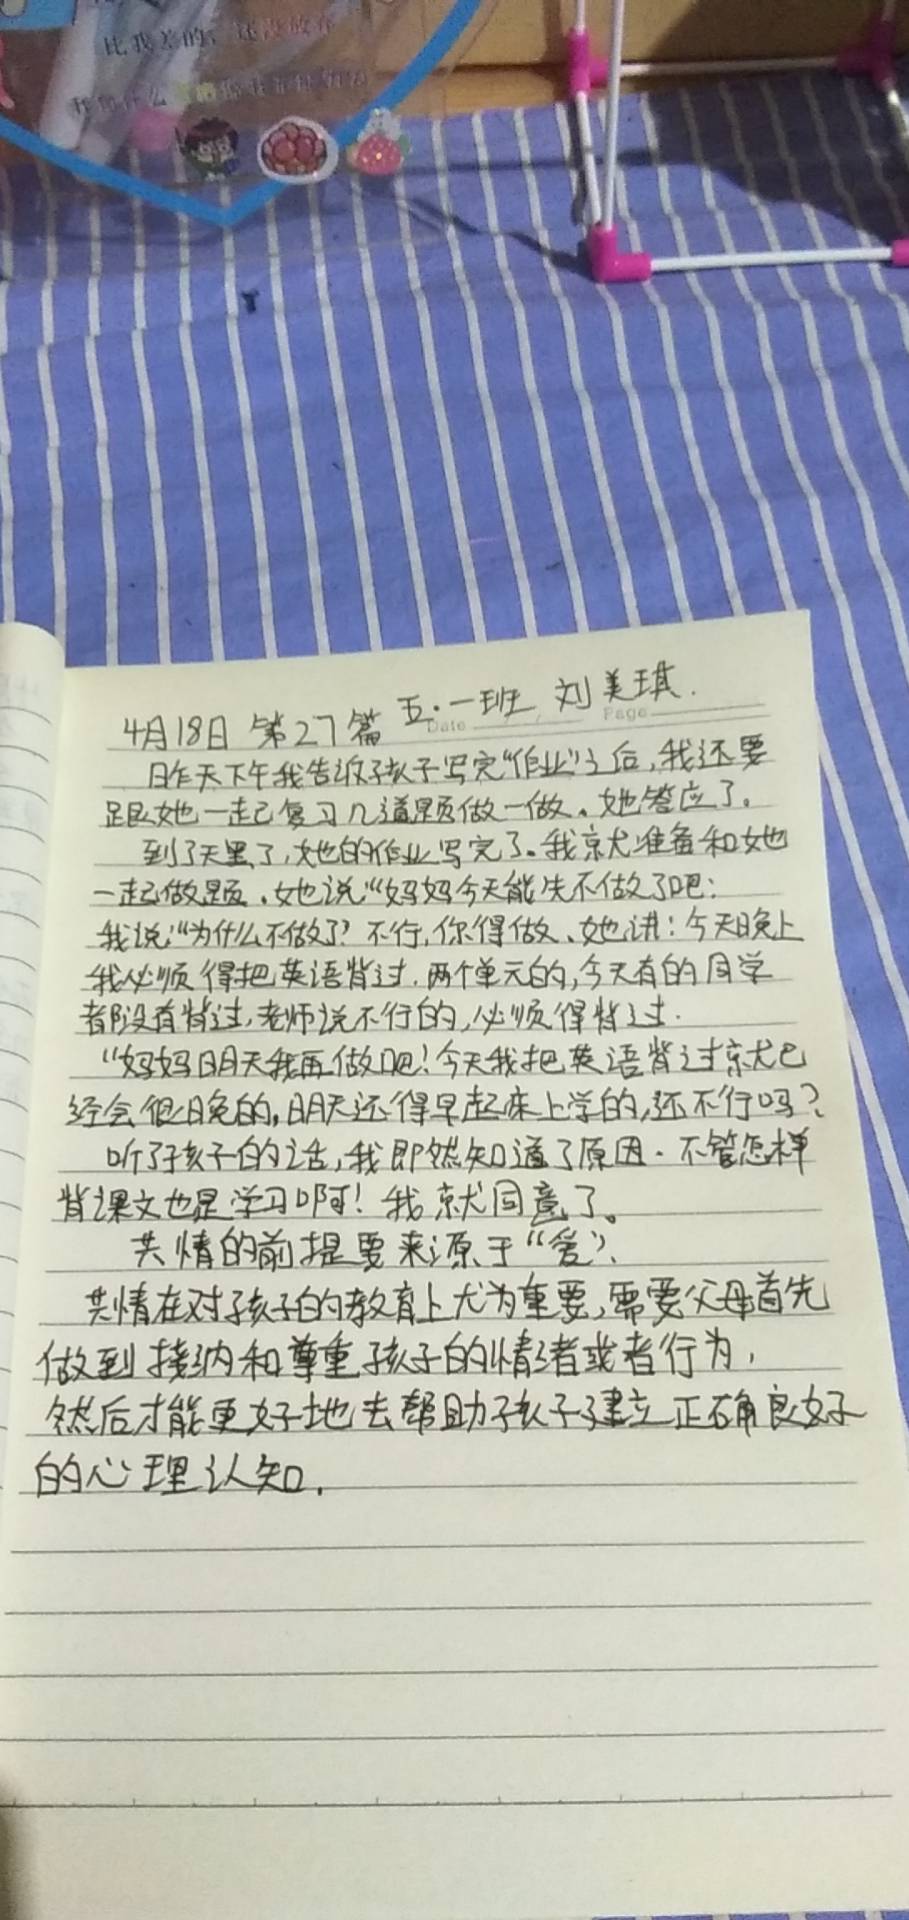 比我差的，还没放弃
4月18日 第27篇 五·一班 刘美琪.
Date Page
昨天下午我告诉孩子写完“作业”之后,我还要
跟她一起复习几道题做一做。她答应了。
到了天黑了,她的作业写完了。我就准备和她
一起做题。她说“妈妈今天能先不做了吧:
我说:“为什么不做了?不行,你得做、她讲:今天晚上
我必须得把英语背过.两个单元的,今天有的同学
都没有背过,老师说不行的,必须得背过.
“妈妈明天我再做吧!今天我把英语背过就已
经会很晚的,明天还得早起床上学的,还不行吗?
听了孩子的话,我即然知道了原因.不管怎样
背课文也是学习啊!我就同意了。
共情的前提要来源于“爱”、
共情在对孩子的教育上尤为重要,需要父母首先
做到接纳和尊重孩子的情绪或者行为,
然后才能更好地去帮助孩子建立正确良好
的心理认知.